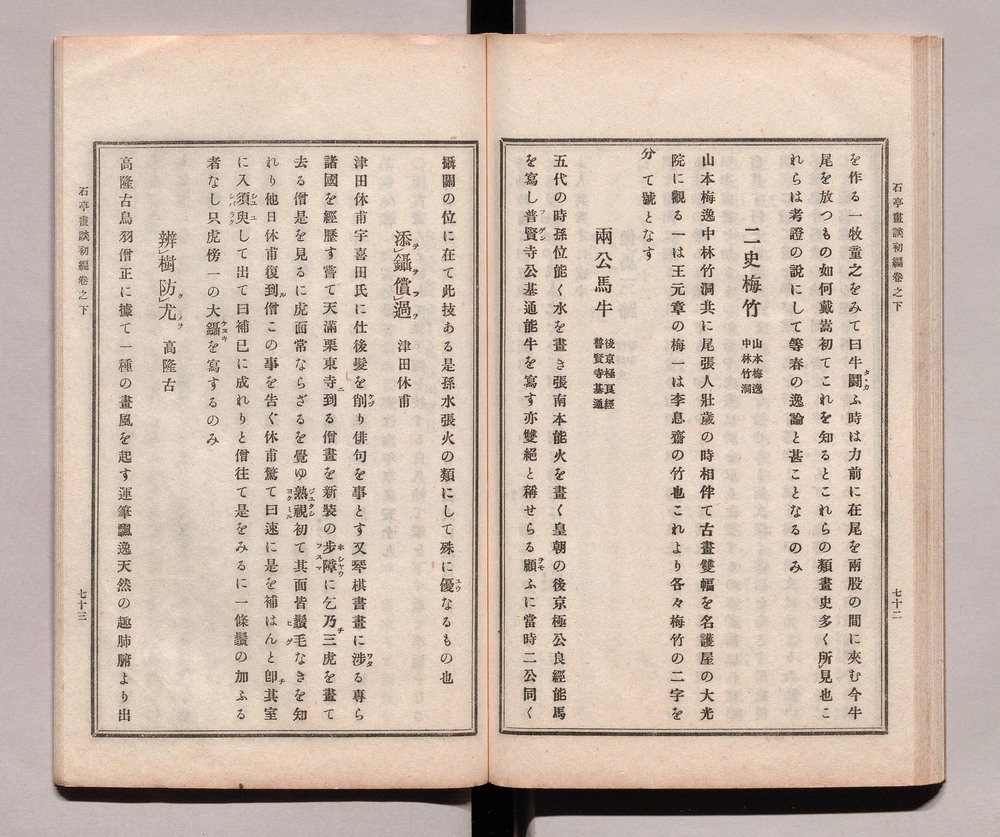 石亭畫談初編卷之下
七十二
を作る一牧童之をみて曰牛鬪ふ時は力前に在尾を兩股の間に夾む今牛
尾を放つもの如何戴嵩初てこれを知るとこれらの類畫史多く所見也こ
れらは考證の說にして等春の逸論と甚ことなるのみ
二史梅竹
山本梅逸
中林竹洞
山本梅逸中林竹洞共に尾張人壯歲の時相伴て古畫雙幅を名護屋の大光
院に觀る一は王元章の梅一は李息齋の竹也これより各々梅竹の二字を
分て號となす
兩公馬牛
後京極良經
普賢寺基通
五代の時孫位能く水を畫き張南本能火を畫く皇朝の後京極公良經能馬
を寫し普賢寺公基通能牛を寫す亦雙絕と稱せらる顧ふに當時二公同く
攝關の位に在て此技ある是孫水張火の類にして殊に優なるもの也
添鑷償過
津田休甫
津田休甫宇喜田氏に仕後髮を削り俳句を事とす又琴棋書畫に涉る專ら
諸國を經歷す嘗て天滿栗東寺到る僧畫を新裝の步障に乞乃三虎を畫て
去る僧是を見るに虎面常ならざるを覺ゆ熟視初て其面皆鬚毛なきを知
れり他日休甫復到僧この事を告ぐ休甫驚て曰速に是を補はんと卽其室
に入須臾して出て曰補已に成れりと僧往て是をみるに一條鬚の加ふる
者なし只虎傍一の大鑷を寫するのみ
辨樹防尤
高隆古
高隆古鳥羽僧正に據て一種の畫風を起す運筆飄逸天然の趣肺腑より出
石亭畫談初編卷之下
七十三